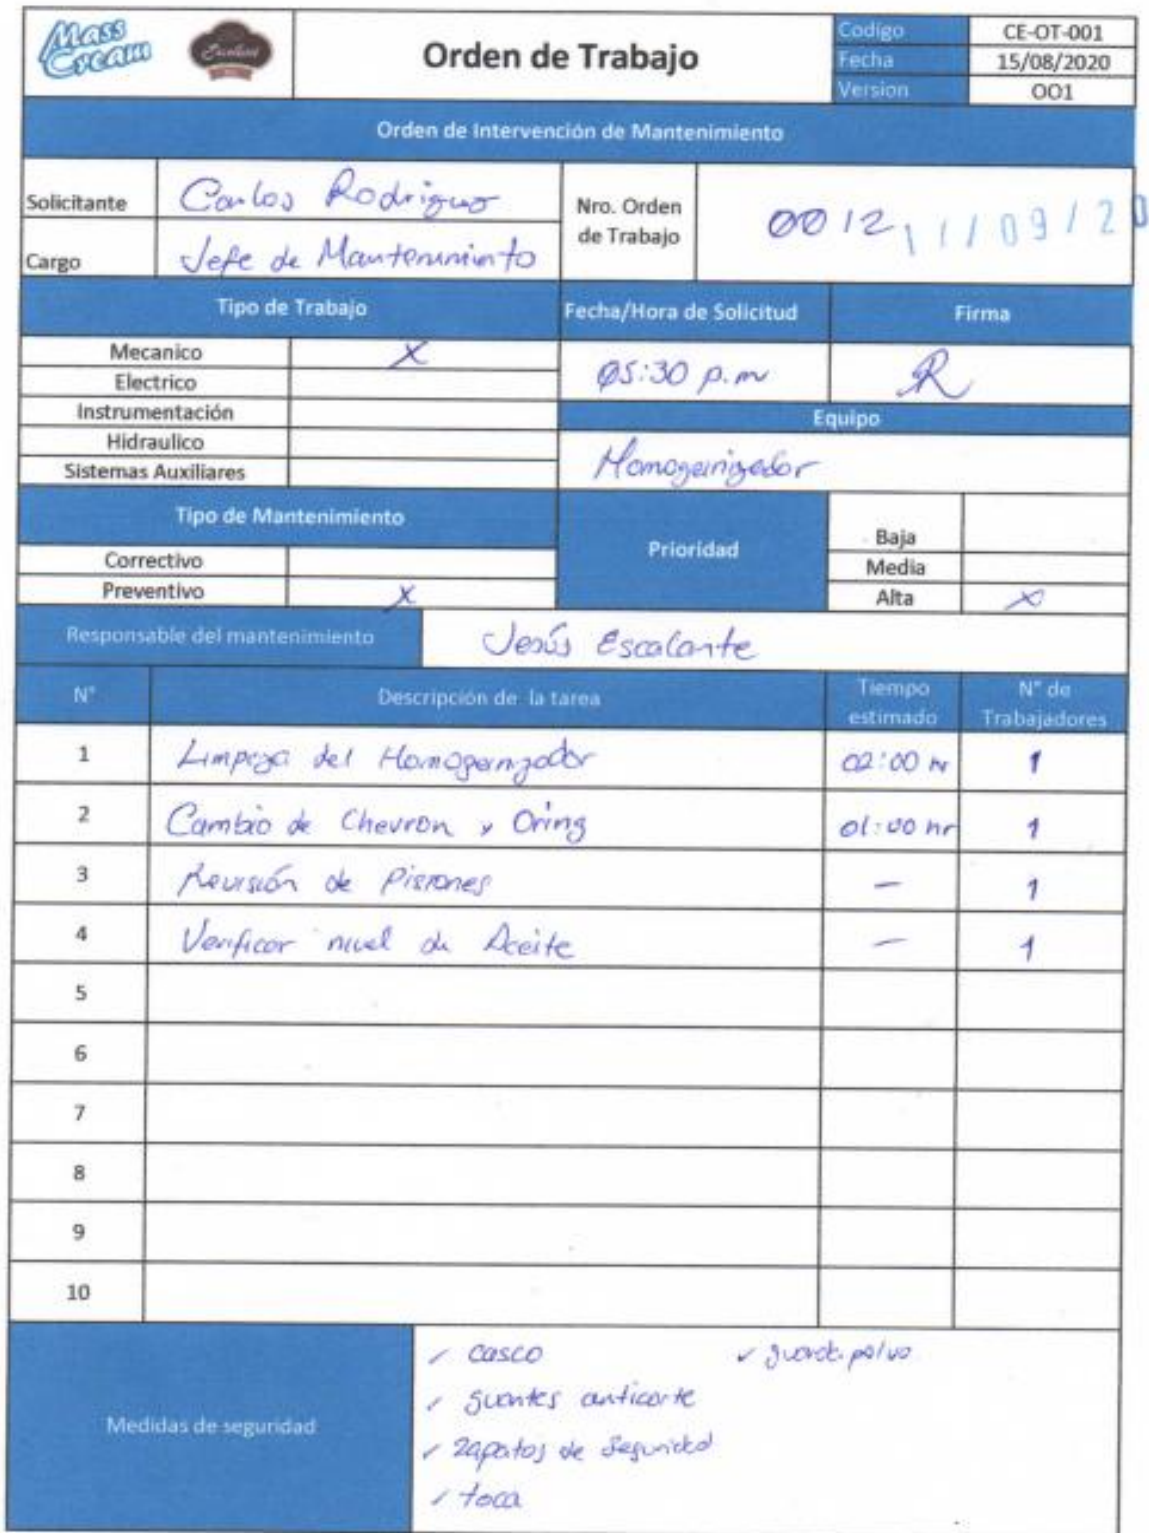 Mass Cream
Excellent
Orden de Trabajo
Codigo CE-OT-001
Fecha 15/08/2020
Version OO1
Orden de Intervención de Mantenimiento
Solicitante Carlos Rodriguez
Cargo Jefe de Mantenimiento
Nro. Orden
de Trabajo
0012 11/09/20
Tipo de Trabajo Fecha/Hora de Solicitud Firma
Mecanico X
Electrico
Instrumentación
Hidraulico
Sistemas Auxiliares
05:30 p.m R
Equipo
Homogeinizador
Tipo de Mantenimiento
Correctivo
Preventivo X
Prioridad
Baja
Media
Alta X
Responsable del mantenimiento Jesús Escalante
N° Descripción de la tarea Tiempo estimado N° de Trabajadores
1 Limpieza del Homogeinizador 02:00 hr 1
2 Cambio de Chevron y Oring 01:00 hr 1
3 Revisión de Pistones - 1
4 Verificar nivel de Aceite - 1
5
6
7
8
9
10
Medidas de seguridad
✓ casco ✓ guardapolvo
✓ guantes anticorte
✓ zapatos de seguridad
✓ toca